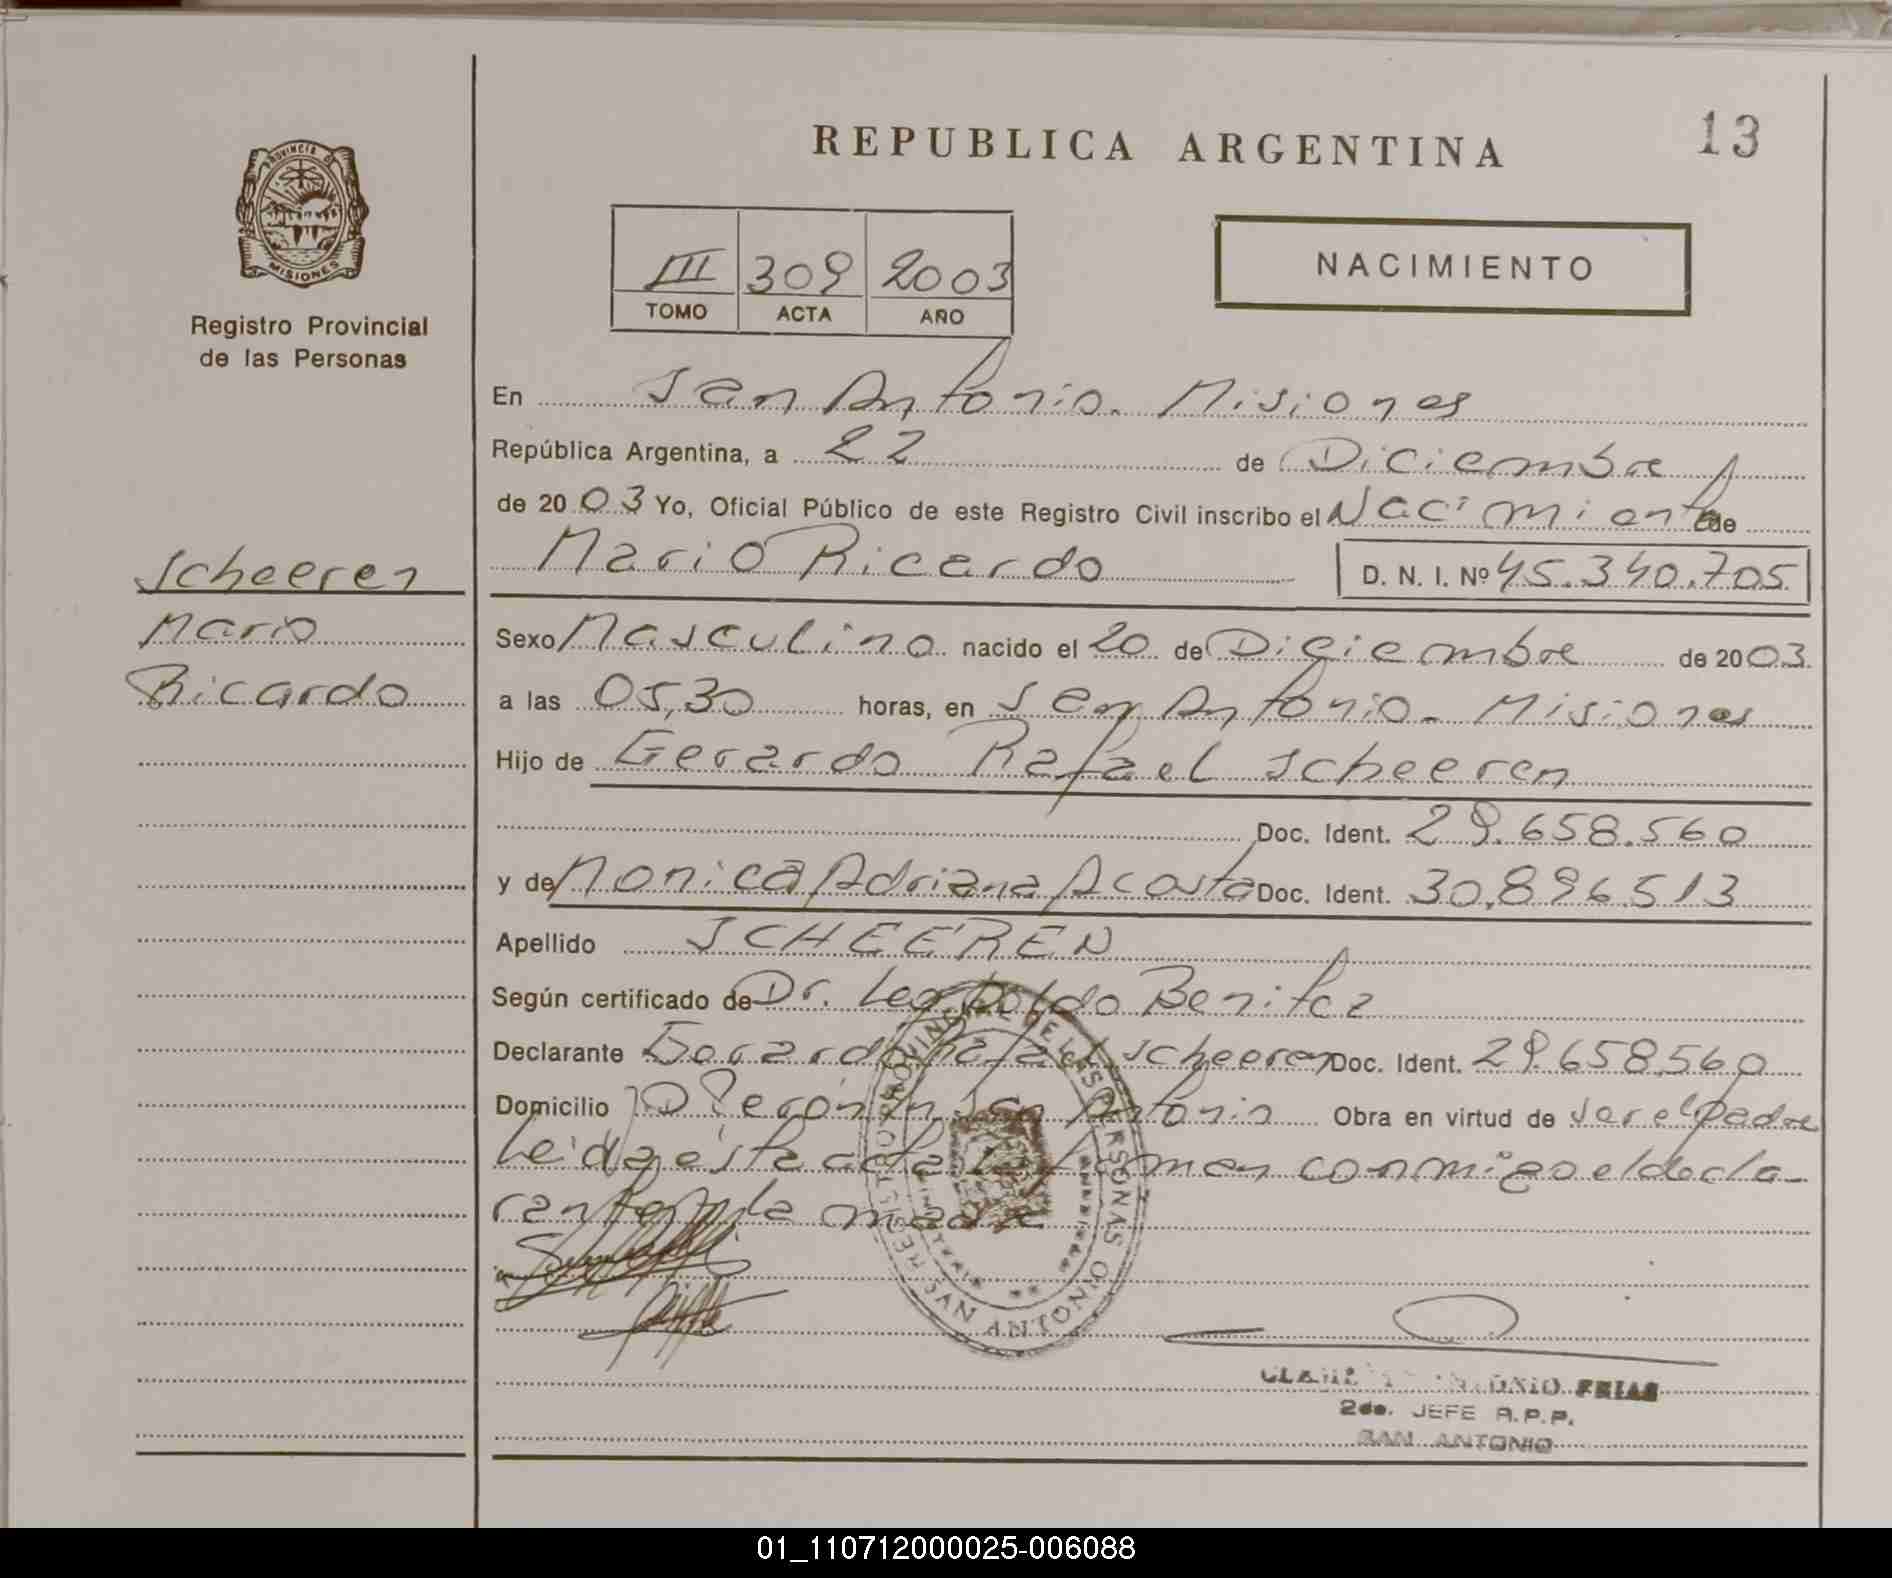 REPUBLICA ARGENTINA
13
PROVINCIA D
MISIONES
Registro Provincial
de las Personas
III 309 2003
TOMO ACTA AÑO
NACIMIENTO
En San Antonio. Misiones
República Argentina, a 22 de Diciembre
de 2003 Yo, Oficial Público de este Registro Civil inscribo el Nacimiento de
Mario Ricardo D. N. I. Nº 45.340.705
Scheeren
Mario
Ricardo
Sexo Masculino nacido el 20 de Diciembre de 2003
a las 05,30 horas, en San Antonio - Misiones
Hijo de Gerardo Rafael Scheeren
Doc. Ident. 29.658.560
y de Monica Adriana Acosta Doc. Ident. 30.896.513
Apellido SCHEEREN
Según certificado de Dr. Leopoldo Benitez
Declarante Gerardo Rafael Scheeren Doc. Ident. 29.658.560
Domicilio San Antonio Obra en virtud de ser el padre
Leida esta acta la firman conmigo el decla-
rante y la madre
REGISTRO PROVINCIAL DE LAS PERSONAS
SAN ANTONIO
ANTONIO FRIAS
2do. JEFE R.P.P.
SAN ANTONIO
01_110712000025-006088